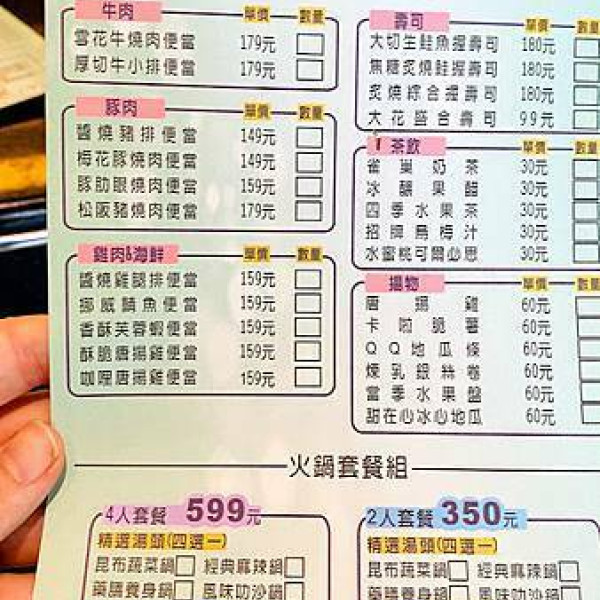 牛肉 單價 數量
雪花牛燒肉便當 179元
厚切牛小排便當 179元
豚肉 單價 數量
醬燒豬排便當 149元
梅花豚燒肉便當 149元
豚肋眼燒肉便當 159元
松阪豬燒肉便當 179元
雞肉&海鮮 單價 數量
醬燒雞腿排便當 159元
挪威鯖魚便當 159元
香酥芙蓉蝦便當 159元
酥脆唐揚雞便當 159元
咖哩唐揚雞便當 159元
壽司 單價 數量
大切生鮭魚握壽司 180元
焦糖炙燒鮭握壽司 180元
炙燒綜合握壽司 180元
大花盛合壽司 99元
茶飲 單價 數量
雀巢奶茶 30元
冰釀果醋 30元
四季水果茶 30元
招牌烏梅汁 30元
水蜜桃可爾必思 30元
揚物 單價 數量
唐揚雞 60元
卡啦脆薯 60元
QQ地瓜條 60元
煉乳銀絲卷 60元
當季水果盤 60元
甜在心冰心地瓜 60元
火鍋套餐組
4人套餐 599元
精選湯頭(四選一)
昆布蔬菜鍋 經典麻辣鍋
藥膳養身鍋 風味叻沙鍋
2人套餐 350元
精選湯頭(四選一)
昆布蔬菜鍋 經典麻辣鍋
藥膳養身鍋 風味叻沙鍋